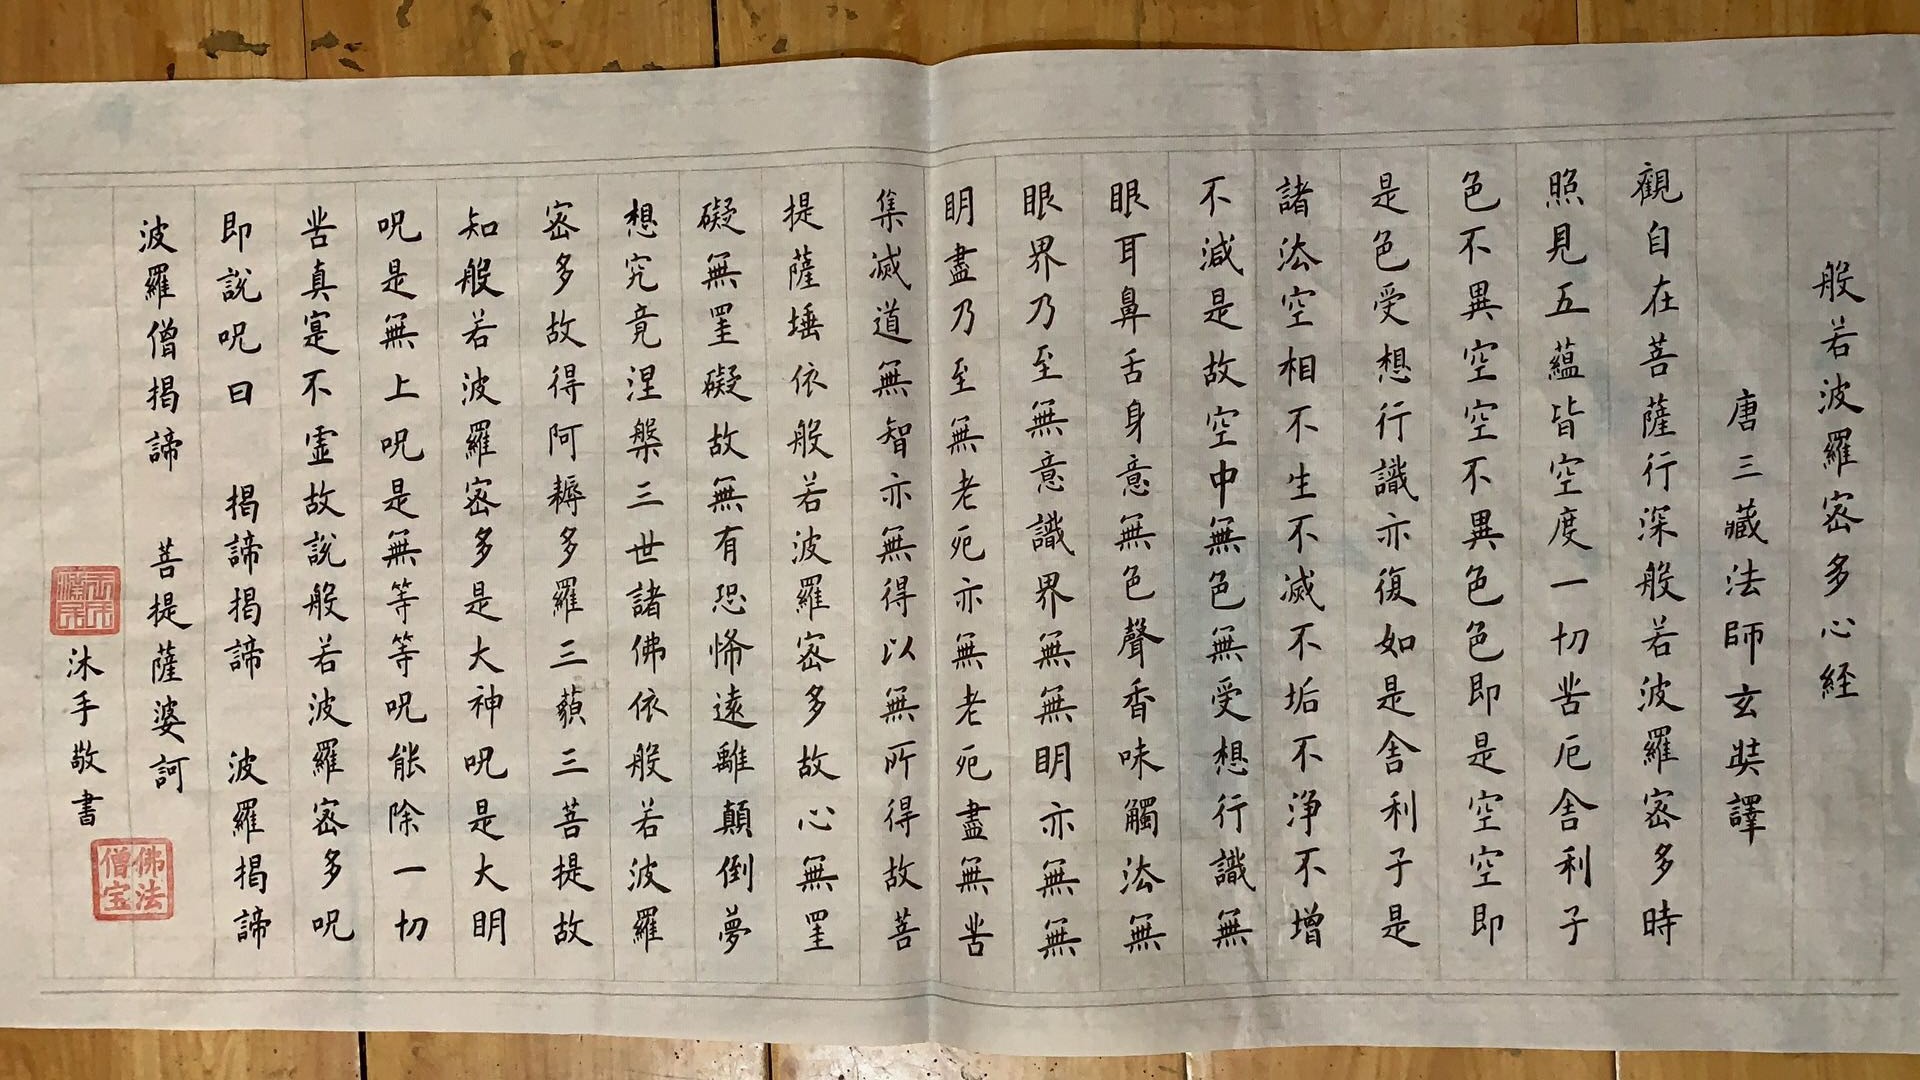 般若波羅密多心経
唐三藏法師玄奘譯
觀自在菩薩行深般若波羅密多時
照見五蘊皆空度一切苦厄舍利子
色不異空空不異色色即是空空即
是色受想行識亦復如是舍利子是
諸法空相不生不滅不垢不淨不增
不減是故空中無色無受想行識無
眼耳鼻舌身意無色聲香味觸法無
眼界乃至無意識界無無明亦無無
明盡乃至無老死亦無老死盡無苦
集滅道無智亦無得以無所得故菩
提薩埵依般若波羅密多故心無罣
礙無罣礙故無有恐怖遠離顛倒夢
想究竟涅槃三世諸佛依般若波羅
密多故得阿耨多羅三藐三菩提故
知般若波羅密多是大神呪是大明
呪是無上呪是無等等呪能除一切
苦真寔不虛故說般若波羅密多呪
即說呪曰 揭諦揭諦 波羅揭諦
波羅僧揭諦 菩提薩婆訶
沐手敬書
佛法僧宝